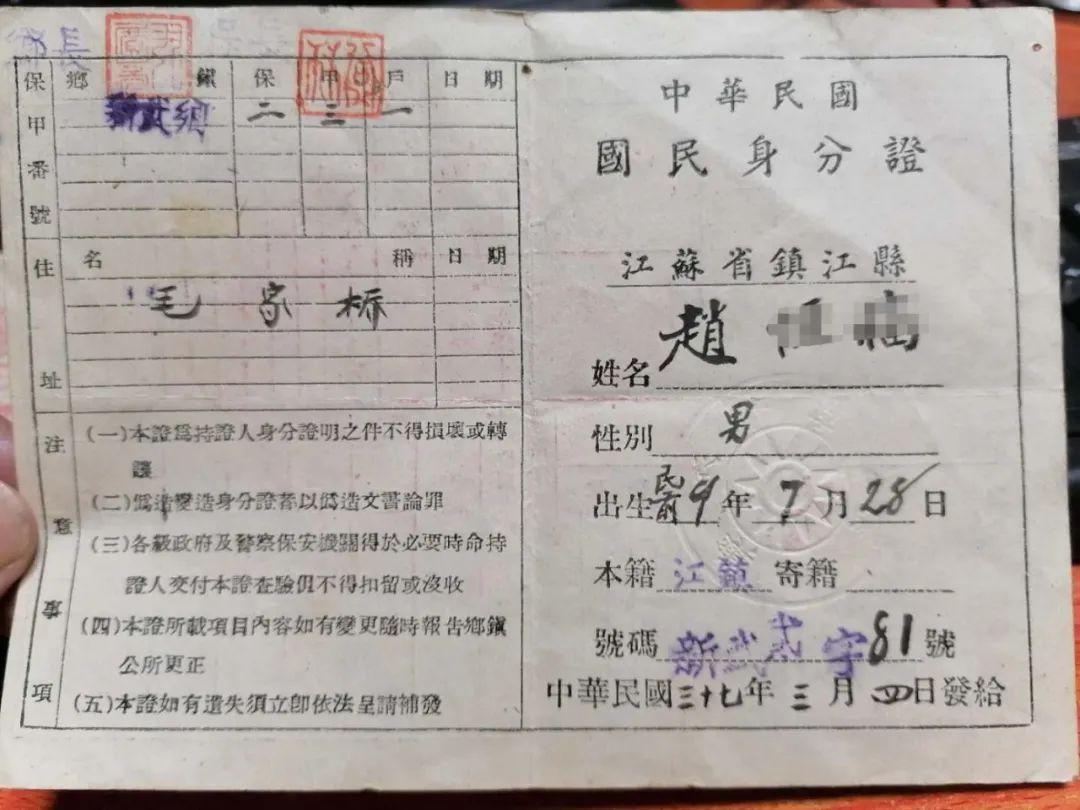 鄉長
保甲番號
鄉 鎮 保 甲 戶 日 期
新武鄉 二 三 一
住址
名 稱 日 期
毛家桥
注意事項
(一)本證爲持證人身分證明之件不得損壞或轉
讓
(二)僞造變造身分證者以僞造文書論罪
(三)各級政府及警察保安機關得於必要時命持
證人交付本證查驗但不得扣留或沒收
(四)本證所載項目內容如有變更隨時報告鄉鎮
公所更正
(五)本證如有遺失須立卽依法呈請補發
中華民國
國民身分證
江蘇省鎮江縣
姓名 趙
性別 男
出生民前9年7月28日
本籍 江 寄籍
號碼 新武貳字81號
中華民國三十七年三月四日發給